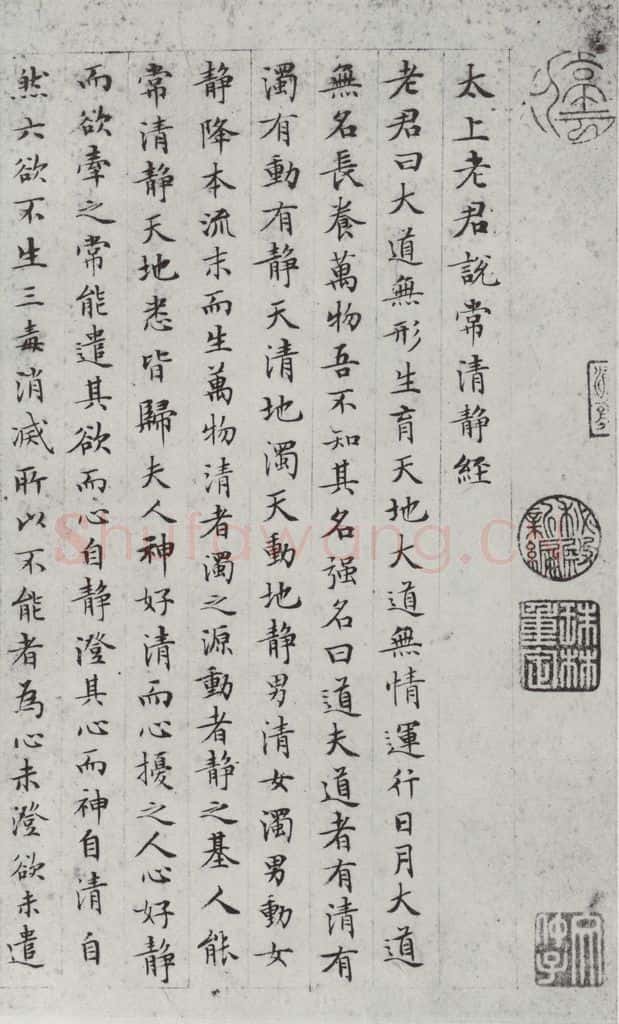 太上老君說常清靜經
老君曰大道無形生育天地大道無情運行日月大道
無名長養萬物吾不知其名强名曰道夫道者有清有
濁有動有靜天清地濁天動地靜男清女濁男動女
靜降本流末而生萬物清者濁之源動者靜之基人能
常清靜天地悉皆歸夫人神好清而心擾之人心好靜
而欲牽之常能遣其欲而心自靜澄其心而神自清自
然六欲不生三毒消滅所以不能者為心未澄欲未遣
秘殿新編
珠林重定
Shufawang.c